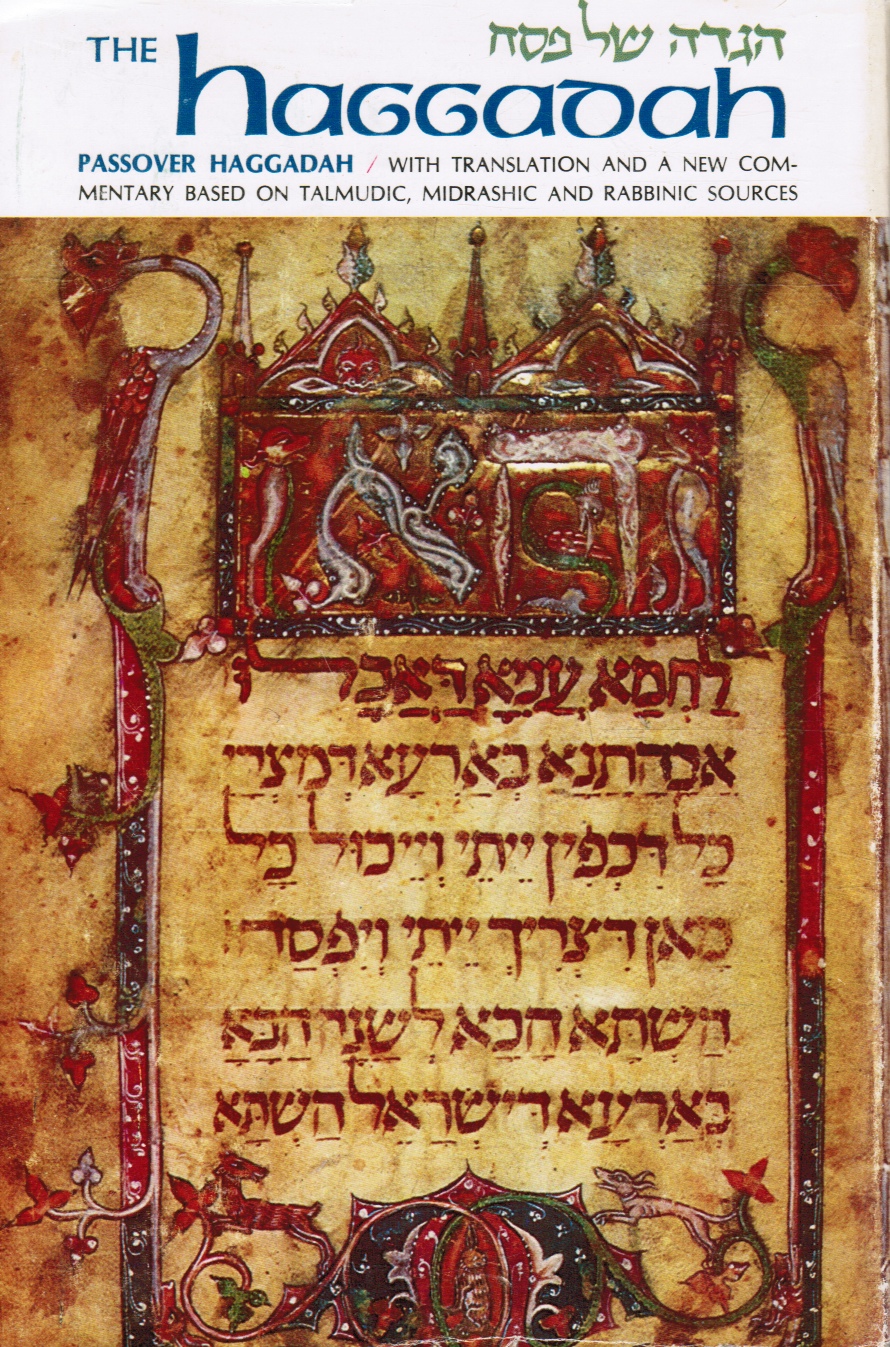 הגדה של פסח
THE haggadah
PASSOVER HAGGADAH / WITH TRANSLATION AND A NEW COM-
MENTARY BASED ON TALMUDIC, MIDRASHIC AND RABBINIC SOURCES
הא
לַחְמָא עַנְיָא דַאֲכָלוּ
אַבְהָתָנָא בְּאַרְעָא דְמִצְרַי
כָל דִכְפִין יֵיתֵי וְיֵיכוּל כָל
מַאן דִצְרִיךְ יֵיתֵי וְיִפְסַח
הַשְׁתָּא הָכָא לְשָׁנָה הַבָּאָ
בְּאַרְעָא דְיִשְׂרָאֵל הַשְׁתָּא